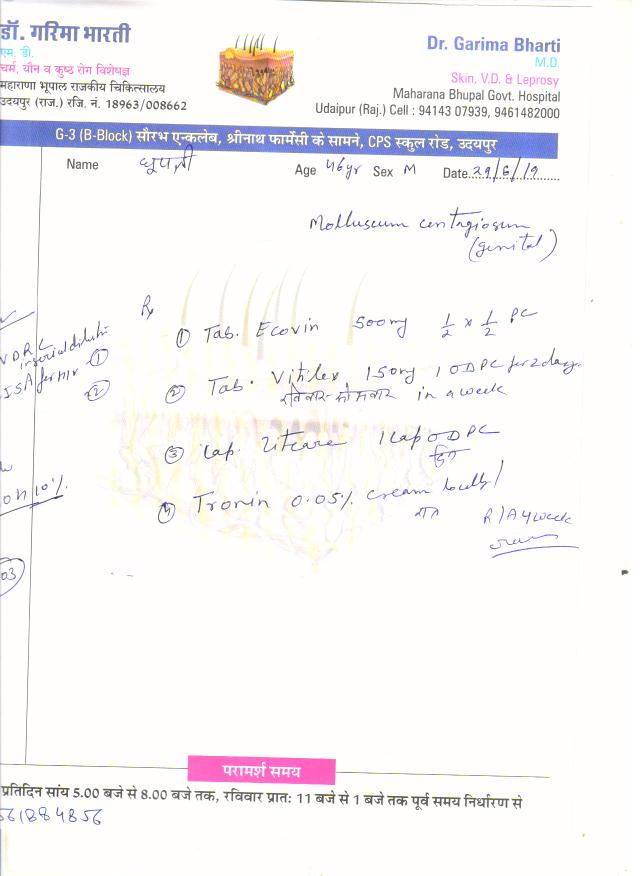 डॉ. गरिमा भारती
एम. डी.
चर्म, यौन व कुष्ठ रोग विशेषज्ञ
महाराणा भूपाल राजकीय चिकित्सालय
उदयपुर (राज.) रजि. नं. 18963/008662
Dr. Garima Bharti
M.D.
Skin, V.D. & Leprosy
Maharana Bhupal Govt. Hospital
Udaipur (Raj.) Cell : 94143 07939, 9461482000
G-3 (B-Block) सौरभ एन्कलेब, श्रीनाथ फार्मेसी के सामने, CPS स्कुल रोड, उदयपुर
Name Age 46yr Sex M Date 29/6/19
Molluscum contagiosum
(genital)
Rx
① Tab. Ecovin 500mg 1/2 x 1/2 PC
② Tab. Vitilex 150mg 1 OD PC for 2 days
रविवार-सोमवार in a week
③ Cap. Zitcare 1 cap OD PC
दिन
④ Tronin 0.05% cream locally
रात
R/A 4 week
VDRL
in serial diluti
①
ISA for HIV
②
KOH 10%
03
परामर्श समय
प्रतिदिन सांय 5.00 बजे से 8.00 बजे तक, रविवार प्रातः 11 बजे से 1 बजे तक पूर्व समय निर्धारण से
561884856